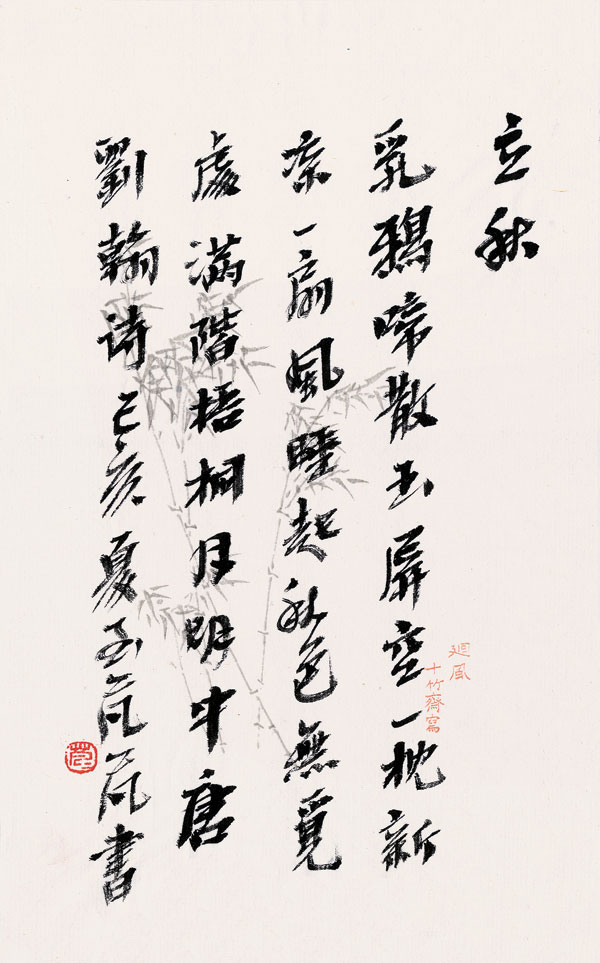 立秋
乳鴉啼散玉屏空一枕新
凉一扇風睡起秋色無覓
處滿階梧桐月明中唐
劉翰诗己亥夏芃芃書
十竹齋寫